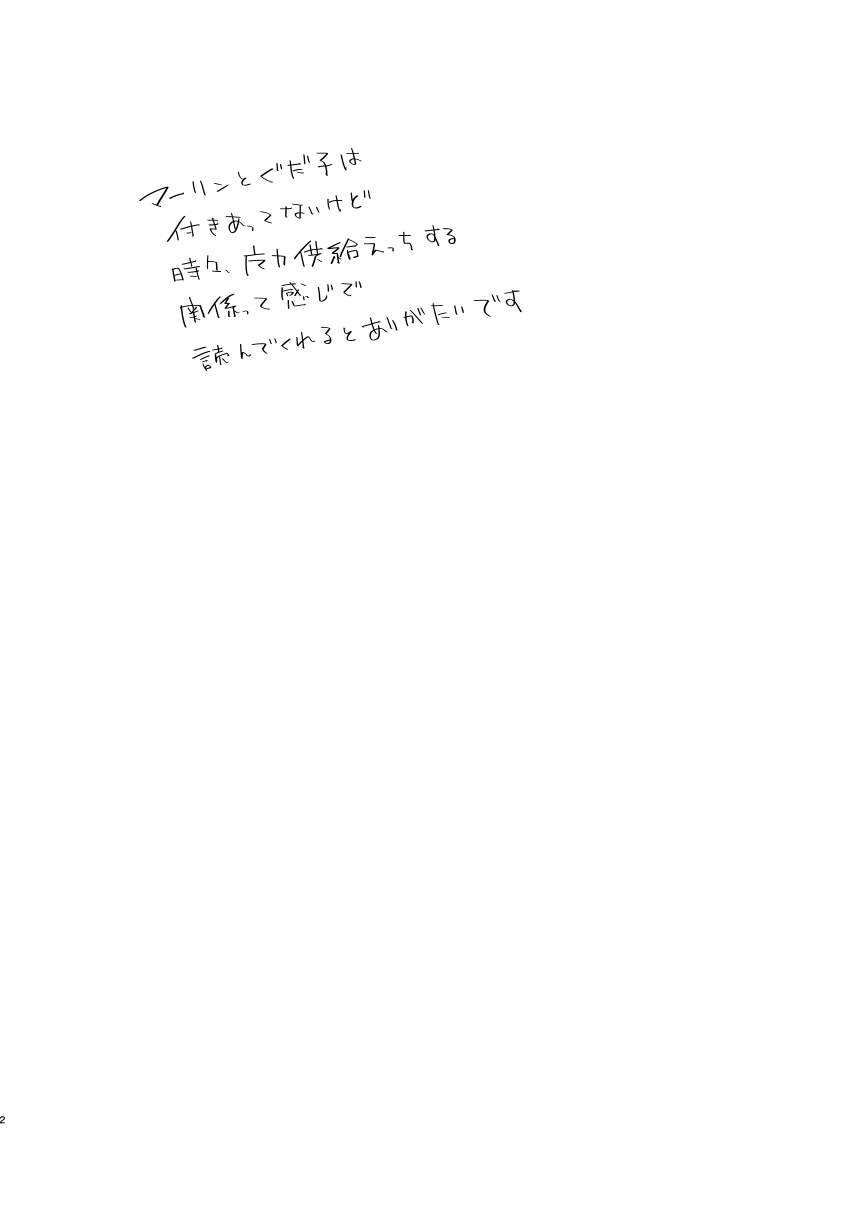 マーリンとぐだ子は
付きあってないけど
時々、魔力供給えっちする
関係って感じで
読んでくれるとありがたいです
2